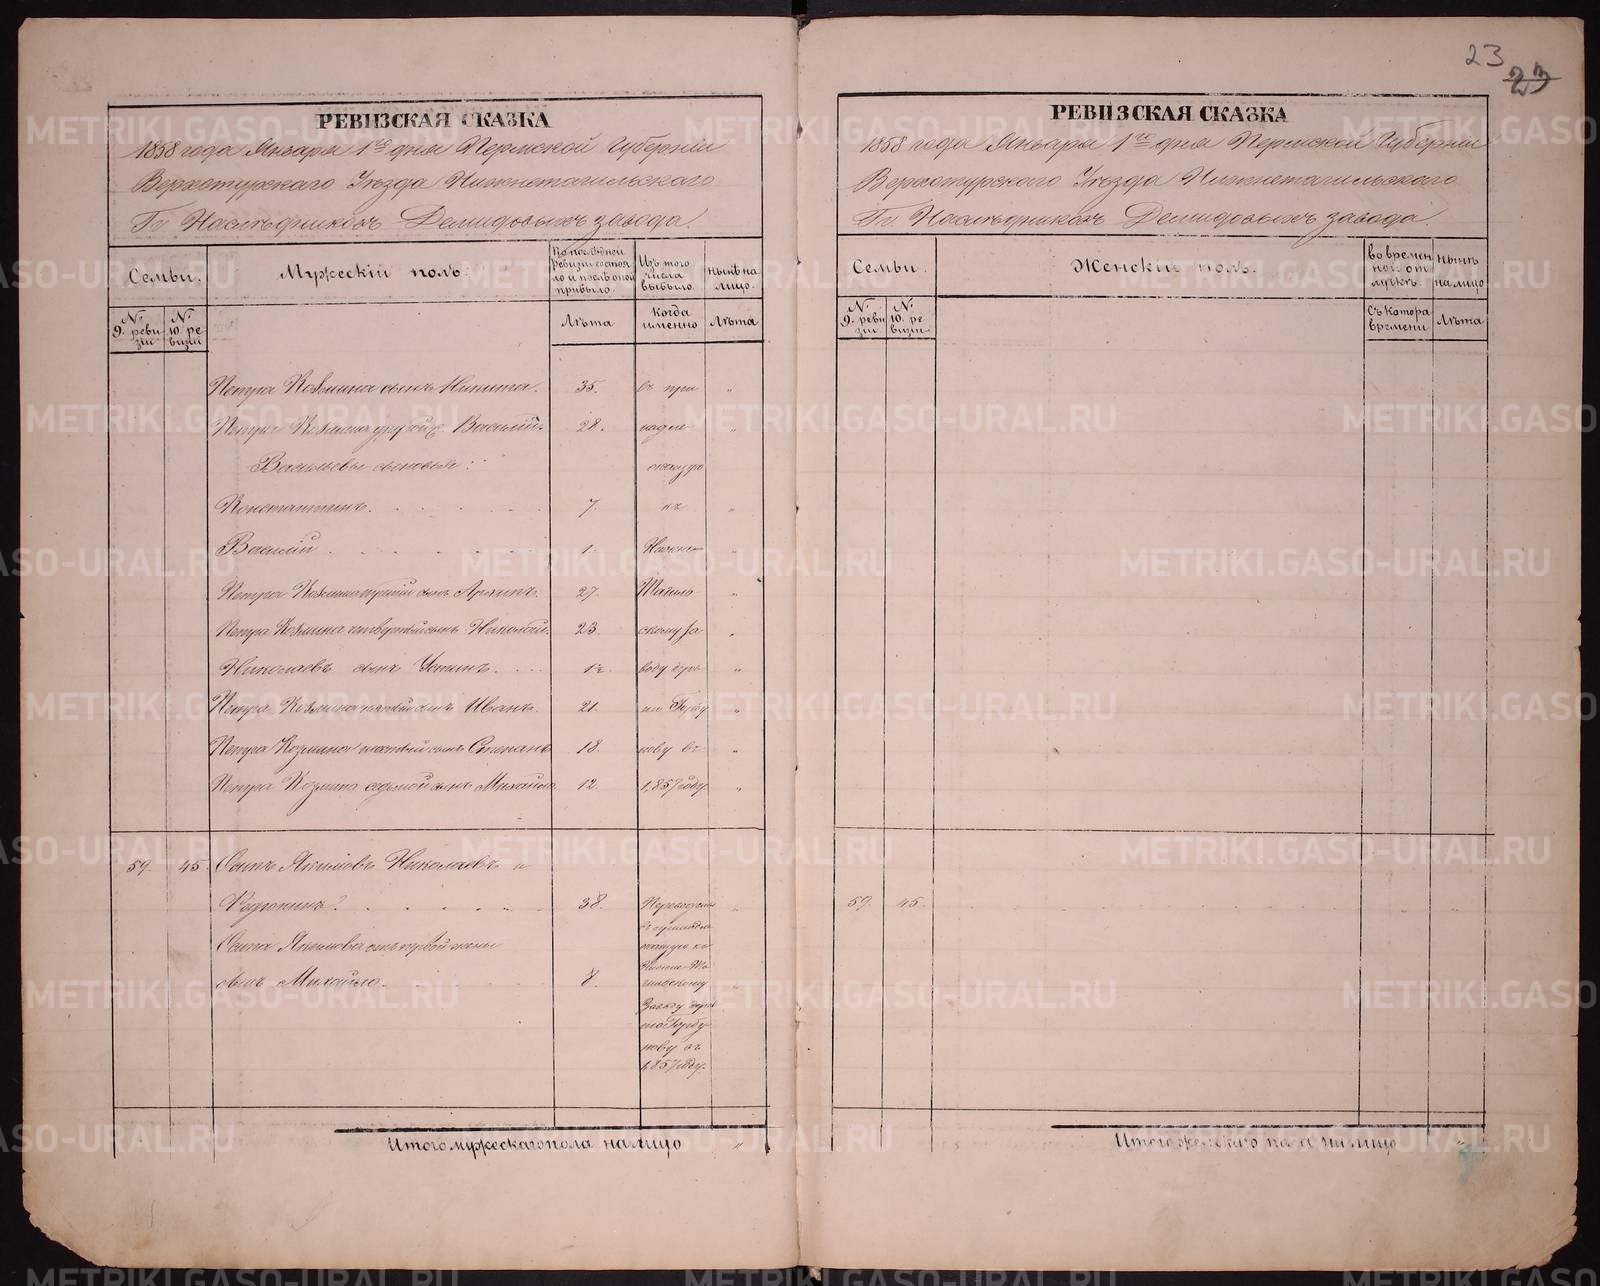 23
23
РЕВИЗСКАЯ СКАЗКА
1858 года Января 1го дня Пермской Губернiи
Верхотурскаго Уѣзда Нижнетагильскаго
Гг. Наслѣдниковъ Демидовыхъ завода.
Семьи.
Мужескiй полъ.
По последней ревизiи состояло и послѣ оной прибыло.
Изъ того числа выбыло.
Нынѣ на лицо.
№ 9. ревизiи
№ 10. ревизiи
Лѣта
Когда именно
Лѣта
Петра Козьмина сынъ Никита. 35. въ при „
Петра Козьмина другой с. Василiй. 28. надле „
Васильевы сыновья: жащую
Константинъ. 7. къ „
Василiй 1. Нижне „
Петра Козьмина третiй сынъ Архипъ. 27. Тагиль „
Петра Козьмина четвертый сынъ Николай. 23. скому за „
Николаевъ сынъ Устинъ. 1½ воду дерев „
Петра Козьмина пятый сынъ Иванъ. 21. ню Горбу „
Петра Козмина шестый сынъ Степанъ 18. нову въ „
Петра Козмина седьмой сынъ Михайло 12. 1857 году. „
59. 45. Осипъ Якимовъ Николаевъ и
38. Перечислены „
въ принадле
Осипа Якимова отъ первой жены жащую къ
Нижне-Та
сынъ Михайло. 8. гильскому „
Заводу дерев
ню Горбу
нову въ
1857 году.
Итого мужескаго пола на лицо „
РЕВИЗСКАЯ СКАЗКА
1858 года Января 1го дня Пермской Губернiи
Верхотурскаго Уѣзда Нижнетагильскаго
Гг. Наслѣдниковъ Демидовыхъ завода
Семьи.
Женскiй полъ.
Во временной отлучкѣ.
Нынѣ на лицо
№ 9. ревизiи
№ 10. ревизiи
Съ котора времени
Лѣта
59. 45.
Итого женскаго пола на лицо „
METRIKI.GASO-URAL.RU